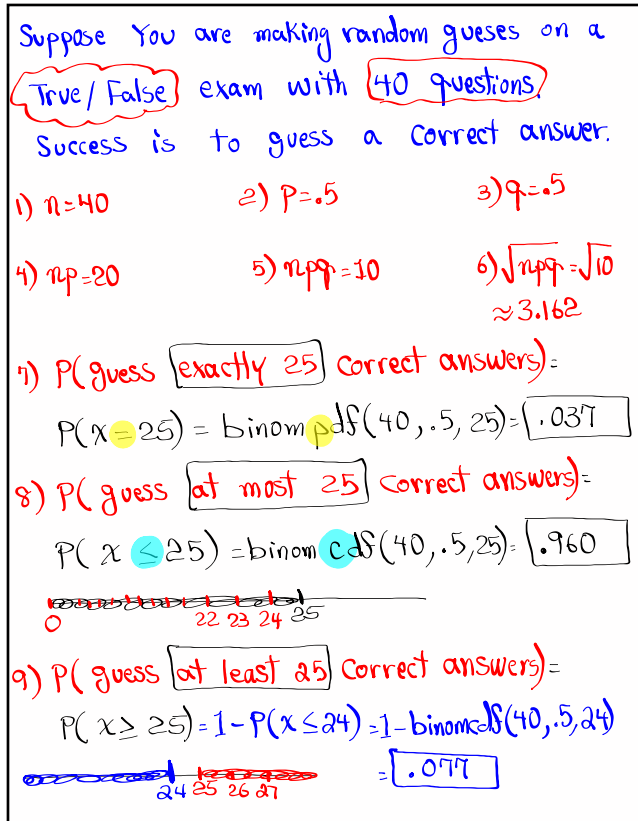 Suppose You are making random gueses on a
True/False exam with 40 questions.
Success is to guess a correct answer.
1) n=40 2) P=.5 3) q=.5
4) np=20 5) npq=10 6) √npq=√10
≈3.162
7) P(guess exactly 25 correct answers)=
P(x=25) = binompdf(40,.5,25)= .037
8) P(guess at most 25 correct answers)=
P(x≤25) =binomcdf(40,.5,25)= .960
0 22 23 24 25
9) P(guess at least 25 correct answers)=
P(x≥25)=1-P(x≤24)=1-binomcdf(40,.5,24)
= .077
24 25 26 27